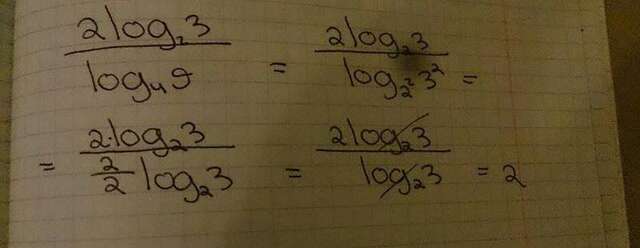 2log₂3 / log₄9 = 2log₂3 / log_{2²}3² =
= 2·log₂3 / (2/2 log₂3) = 2log₂3 / log₂3 = 2